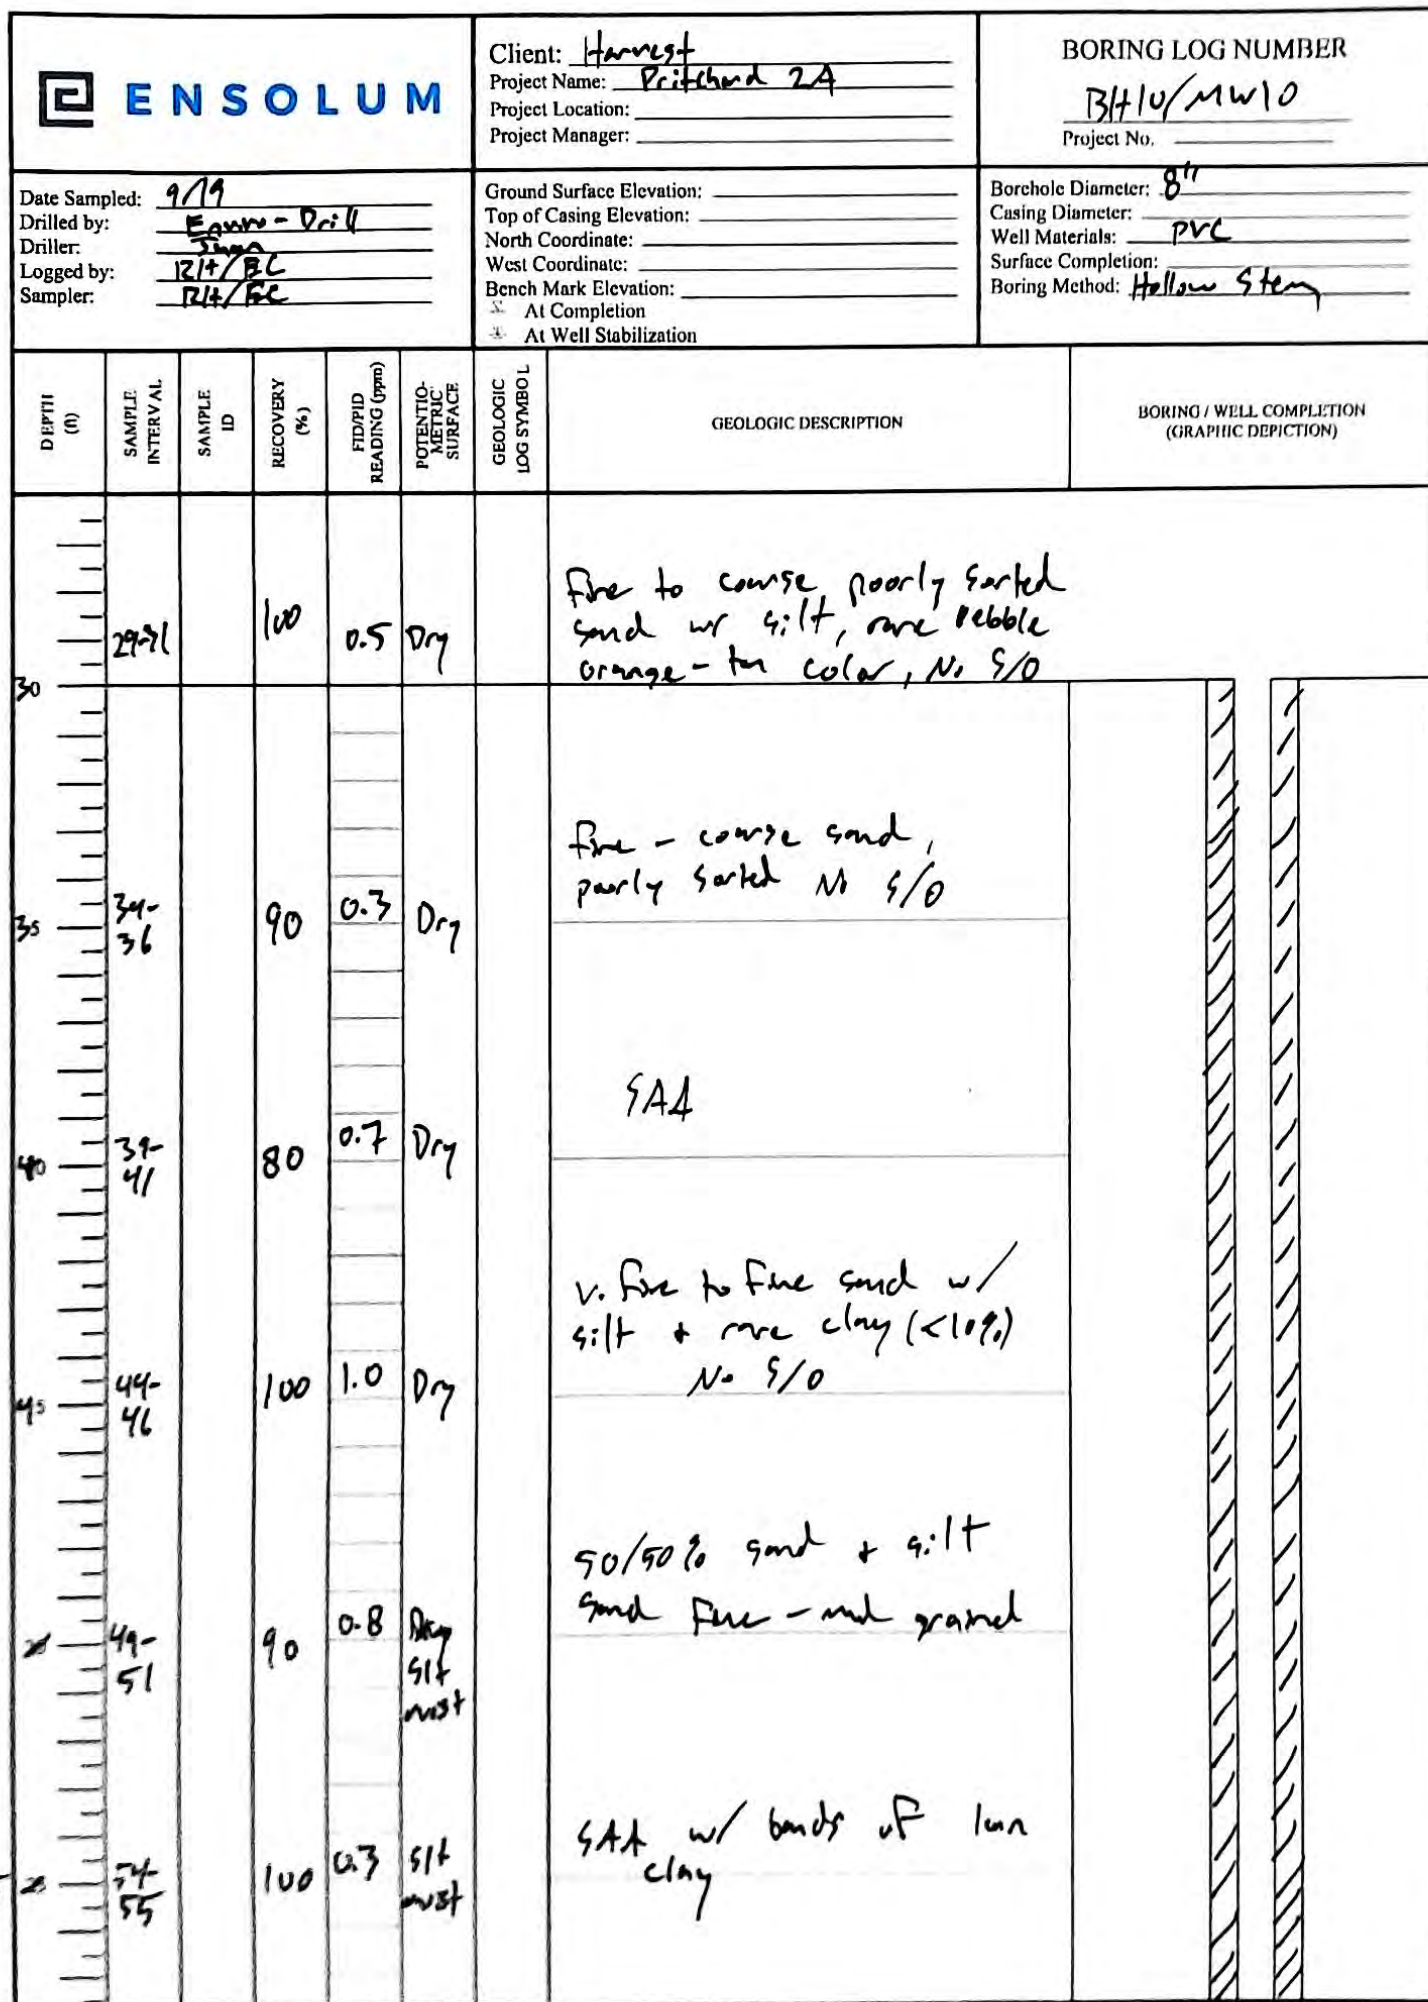 ENSOLUM
Client: Harvest
Project Name: Pritchard 2A
Project Location:
Project Manager:
BORING LOG NUMBER
BH10/MW10
Project No.
Date Sampled: 9/19
Drilled by: Enviro-Drill
Driller:
Logged by: RH/EC
Sampler: RH/EC
Ground Surface Elevation:
Top of Casing Elevation:
North Coordinate:
West Coordinate:
Bench Mark Elevation:
At Completion
At Well Stabilization
Borehole Diameter: 8"
Casing Diameter:
Well Materials: PVC
Surface Completion:
Boring Method: Hollow Stem
DEPTH (ft)
SAMPLE INTERVAL
SAMPLE ID
RECOVERY (%)
FID/PID READING (ppm)
POTENTIO-METRIC SURFACE
GEOLOGIC LOG SYMBOL
GEOLOGIC DESCRIPTION
BORING / WELL COMPLETION
(GRAPHIC DEPICTION)
29-31 100 0.5 Dry
Fine to coarse, poorly sorted
sand w/ silt, rare pebble
orange-tan color, No S/O
30
fine - coarse sand,
poorly sorted No S/O
35 34-36 90 0.3 Dry
SAA
40 39-41 80 0.7 Dry
v. fine to fine sand w/
silt + rare clay (<10%)
No S/O
45 44-46 100 1.0 Dry
50/50% sand + silt
sand fine - med grained
49-51 90 0.8 Slt moist
SAA w/ bands of lean
clay
54-55 100 0.3 Slt moist